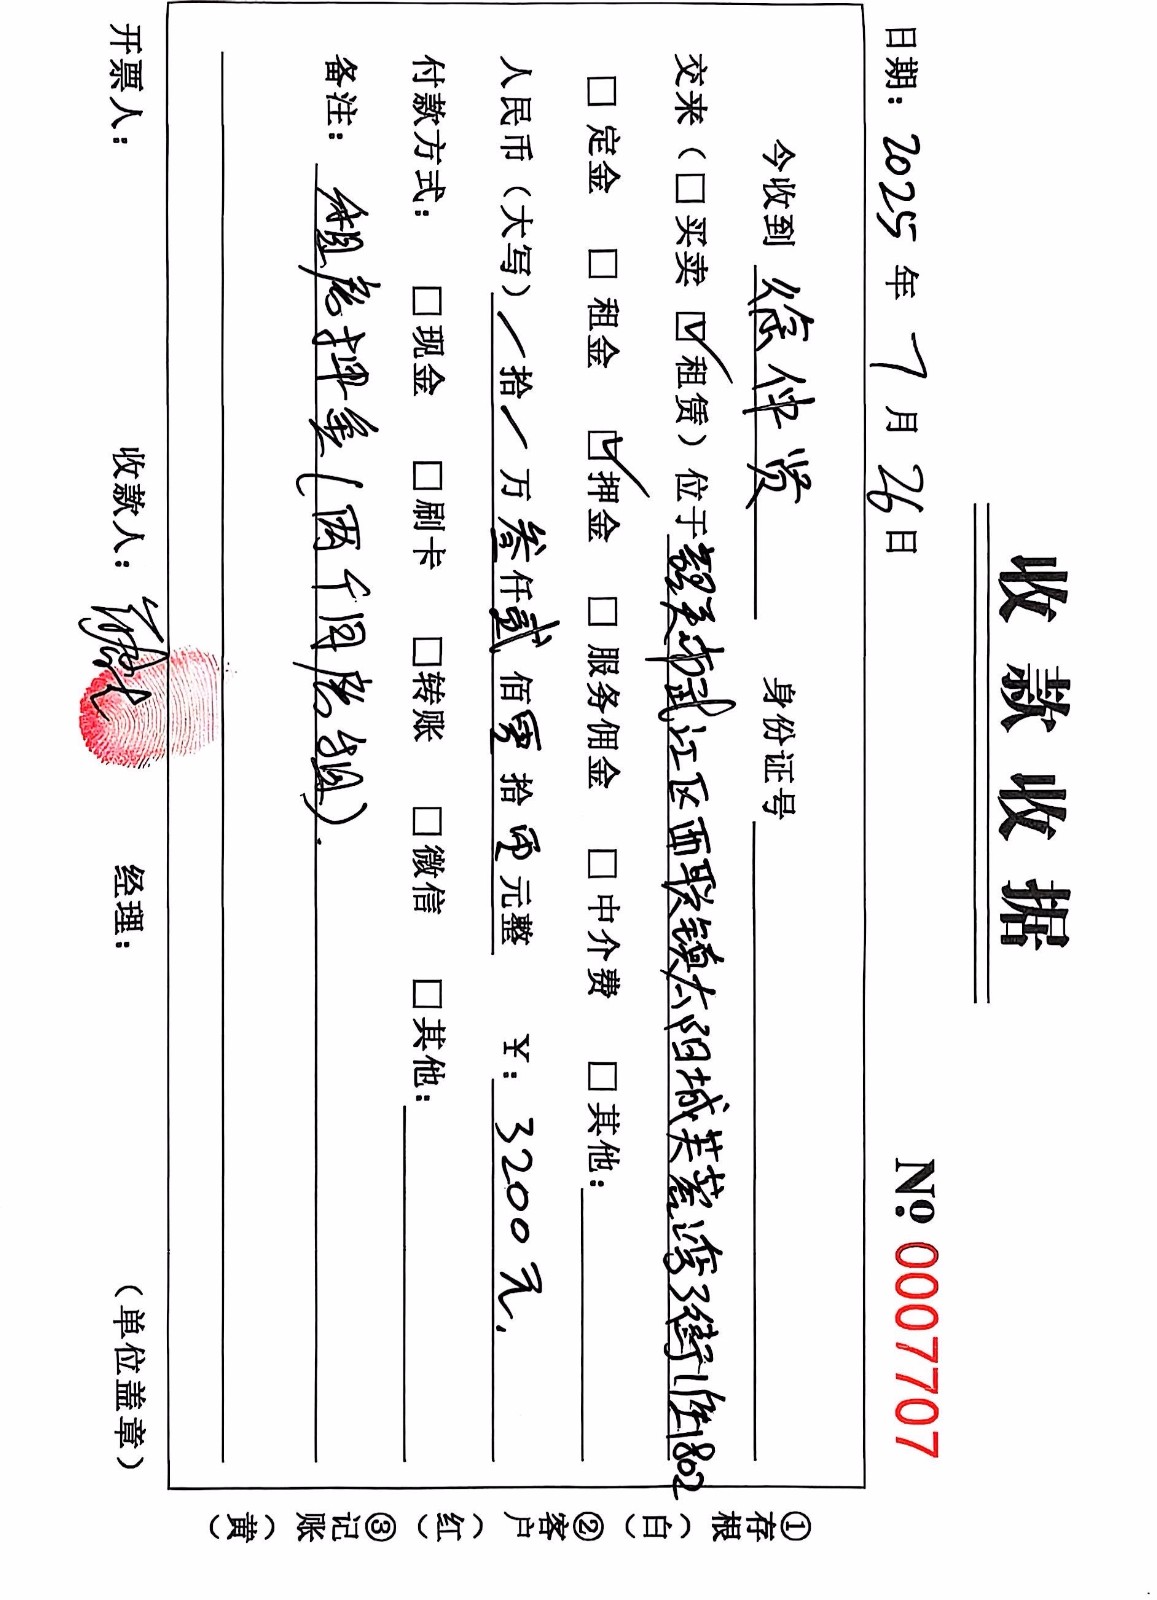 收款收据
日期：2025年7月26日 №.0007707
今收到 徐仲贤 身份证号
交来（□买卖 ☑租赁）位于韶关市武江区西联镇太阳城芙蓉湾3街1座1802
□定金 □租金 ☑押金 □服务佣金 □中介费 □其他：
人民币（大写）/拾/万叁仟贰佰零拾零元整 ￥：3200元.
付款方式： □现金 □刷卡 □转账 □微信 □其他：
备注：租房押金(两个月房租).
开票人： 收款人： 经理： （单位盖章）
①存根（白） ②客户（红） ③记账（黄）